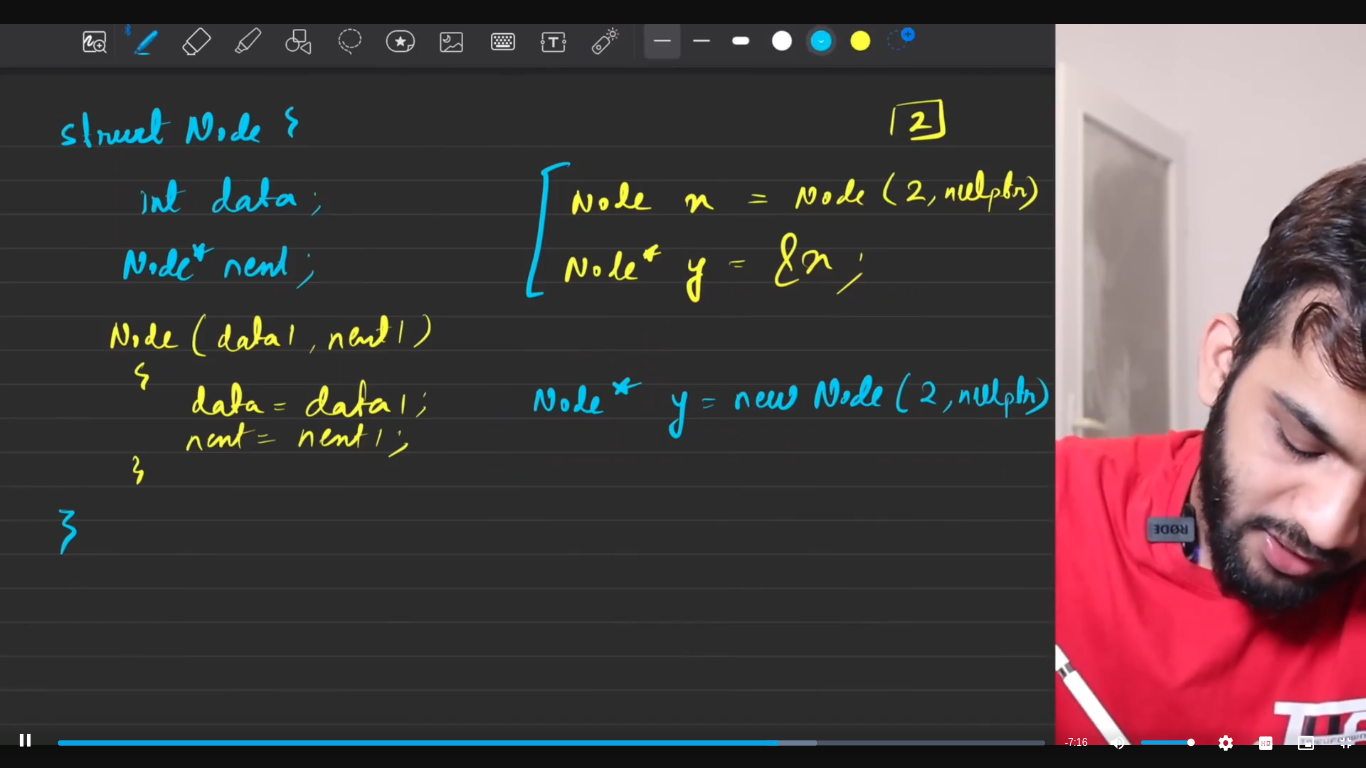 struct Node {
int data;
Node* next;
Node (data1, next1)
{
data = data1;
next = next1;
}
}
2
Node x = Node (2, nullptr)
Node* y = &x;
Node* y = new Node (2, nullptr)
RØDE
-7:16